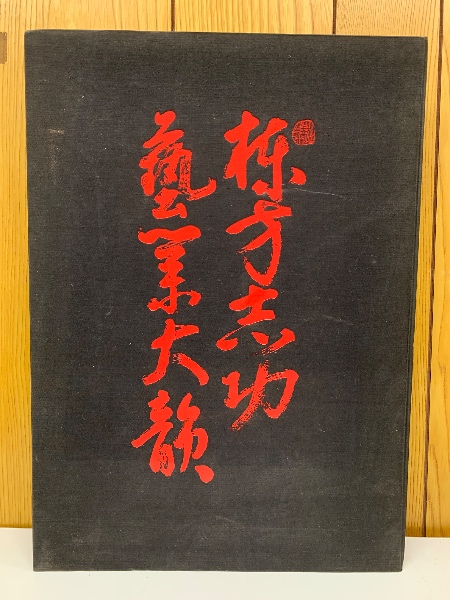 棟方志功
藝業大韻